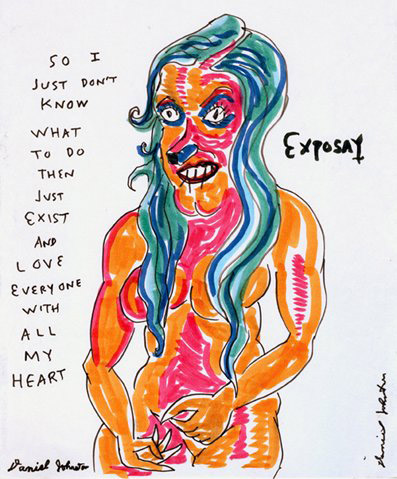 SO I
JUST DON'T
KNOW
WHAT
TO DO
THEN
JUST
EXIST
AND
LOVE
EVERYONE
WITH
ALL
MY
HEART
EXPOSAY
Daniel Johnston
Daniel Johnston